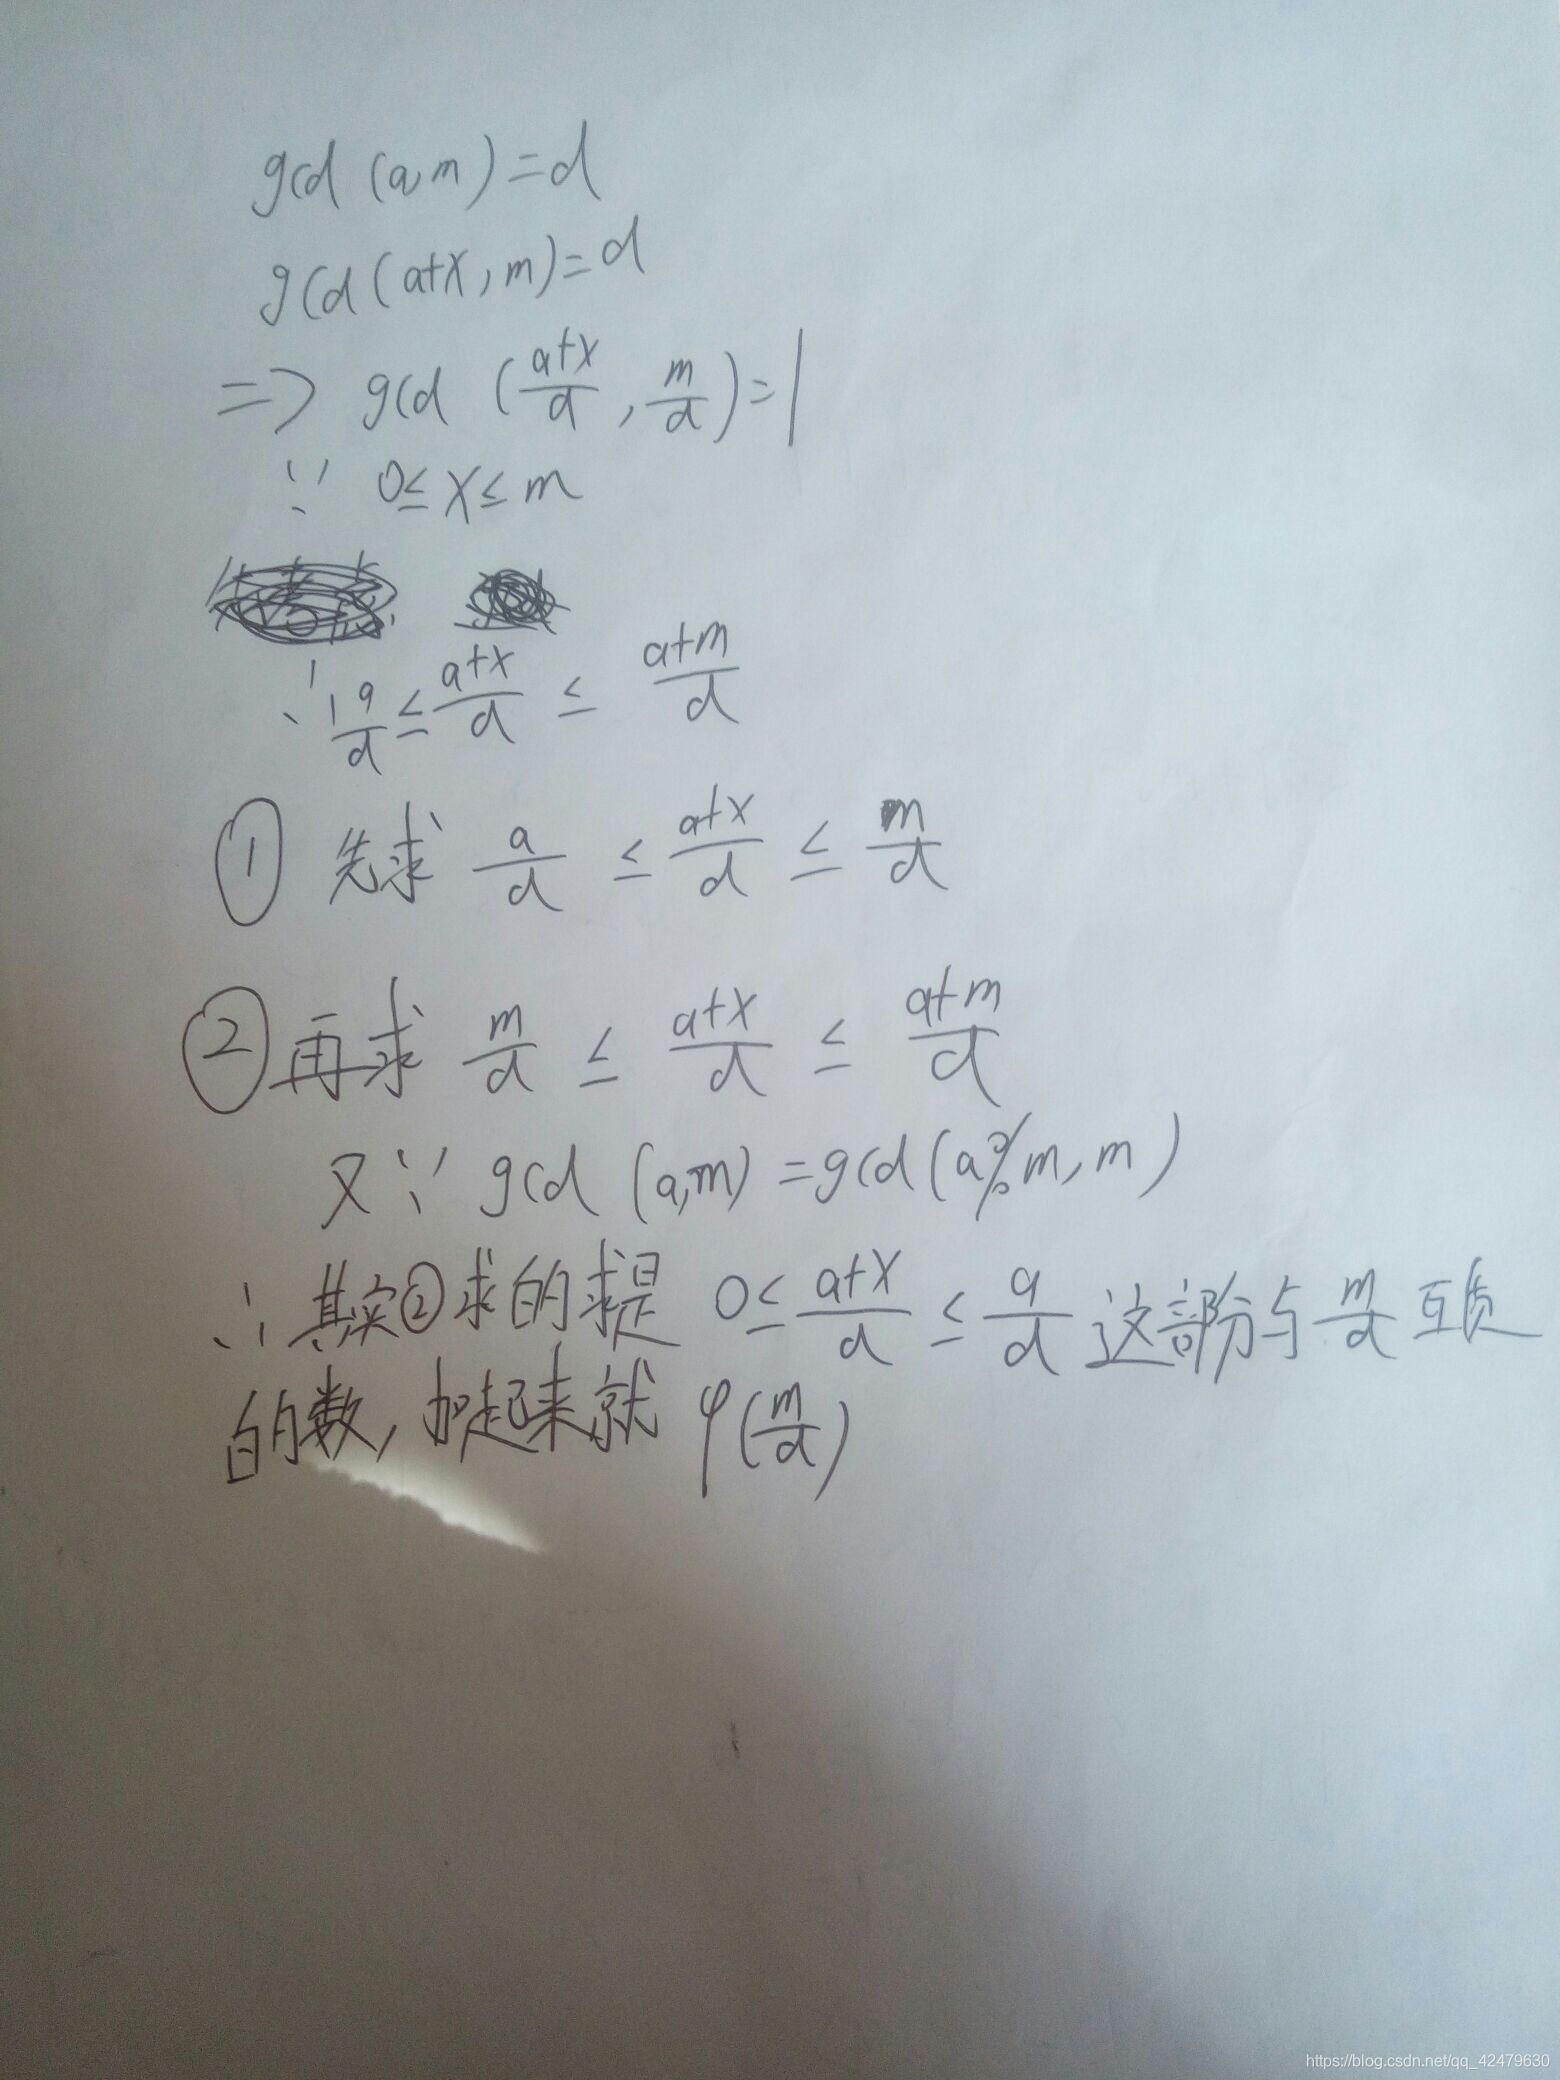 gcd (a,m)=d
gcd (a+x,m)=d
=> gcd (\frac{a+x}{d}, \frac{m}{d})=1
∵ 0≤x≤m
∴ \frac{a}{d} ≤ \frac{a+x}{d} ≤ \frac{a+m}{d}
① 先求 \frac{a}{d} ≤ \frac{a+x}{d} ≤ \frac{m}{d}
② 再求 \frac{m}{d} ≤ \frac{a+x}{d} ≤ \frac{a+m}{d}
又∵ gcd (a,m) =gcd(a%m,m)
∴ 其实②求的求是 0≤ \frac{a+x}{d} ≤ \frac{a}{d} 这部分与 \frac{m}{d} 互质
的数,加起来就 φ(\frac{m}{d})
https://blog.csdn.net/qq_42479630